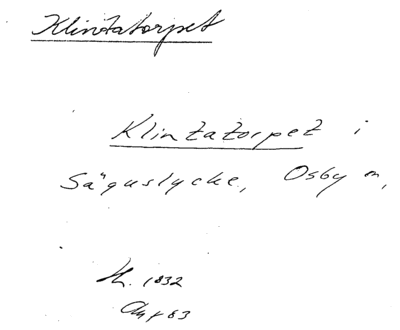 Klintatorpet
Klintatorpet i
Säguslycke, Osby sn,
1832